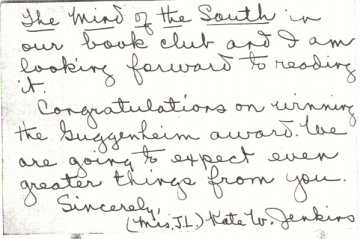 The Mind of the South in
our book club and I am
looking forward to reading
it.
Congratulations on winning
the Guggenheim award. We
are going to expect even
greater things from you.
Sincerely,
(Mrs. J.L.) Kate W. Jenkins